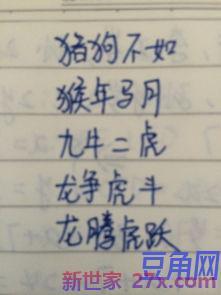 猪狗不如
猴年马月
九牛二虎
龙争虎斗
龙腾虎跃
豆角网
新世家 27x.com